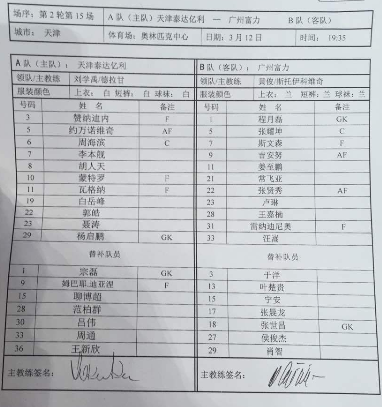 场序：第 2 轮第 15 场 A 队（主队）天津泰达亿利 — 广州富力 B 队（客队）
城市：天津 体育场：奥林匹克中心 日期：3 月 12 日 时间：19:35
A 队（主队）：天津泰达亿利 B 队（客队）：广州富力
领队/主教练 刘学禹/德拉甘 领队/主教练 黄俊/斯托伊科维奇
服装颜色 上衣：白 短裤：白 球袜：白 服装颜色 上衣：兰 短裤：兰 球袜：兰
号码 姓 名 备注 号码 姓 名 备注
3 赞纳迪内 F 1 程月磊 GK
5 约万诺维奇 AF 5 张耀坤 C
6 周海滨 C 7 斯文森 F
7 李本舰 9 吉安努 AF
8 胡人天 11 姜至鹏
10 蒙特罗 F 21 常飞亚
11 瓦格纳 F 22 张贤秀 AF
19 白岳峰 23 卢琳
22 郭皓 28 王嘉楠
23 聂涛 31 雷纳迪尼奥 F
29 杨启鹏 GK 33 汪嵩
替补队员 替补队员
1 宗磊 GK 3 于洋
9 姆巴耶·迪亚涅 F 13 叶楚贵
15 聊博超 15 宁安
28 范柏群 17 张晨龙
30 吕伟 18 张世昌 GK
33 周通 27 侯俊杰
36 王新欣 29 肖智
主教练签名： 主教练签名：